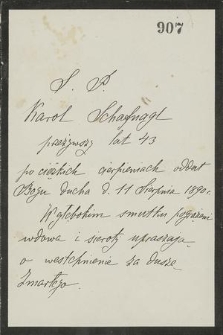 907
Ś. P.
Karol Schafnagl
przeżywszy lat 43
po ciężkich cierpieniach oddał
Bogu ducha d. 11 Sierpnia 1890.
W głębokim smutku pogrążeni
wdowa i sieroty upraszają
o westchnienie za duszę
zmarłego.